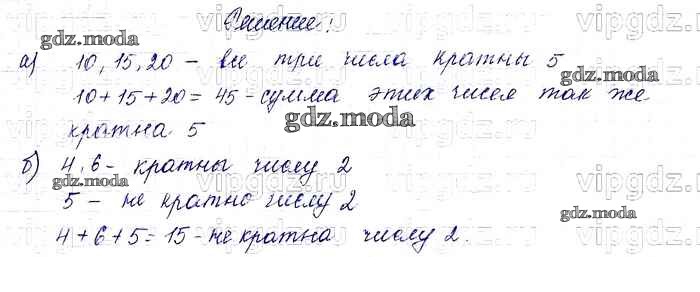 Решение:
а) 10, 15, 20 - все три числа кратны 5
10+15+20=45 - сумма этих чисел так же
кратна 5
б) 4,6 - кратны числу 2
5 - не кратно числу 2
4+6+5=15 - не кратна числу 2.
gdz.moda
gdz.moda
gdz.moda
gdz.moda
gdz.moda
vipgdz.ru
vipgdz.ru
vipgdz.ru
vipgdz.ru